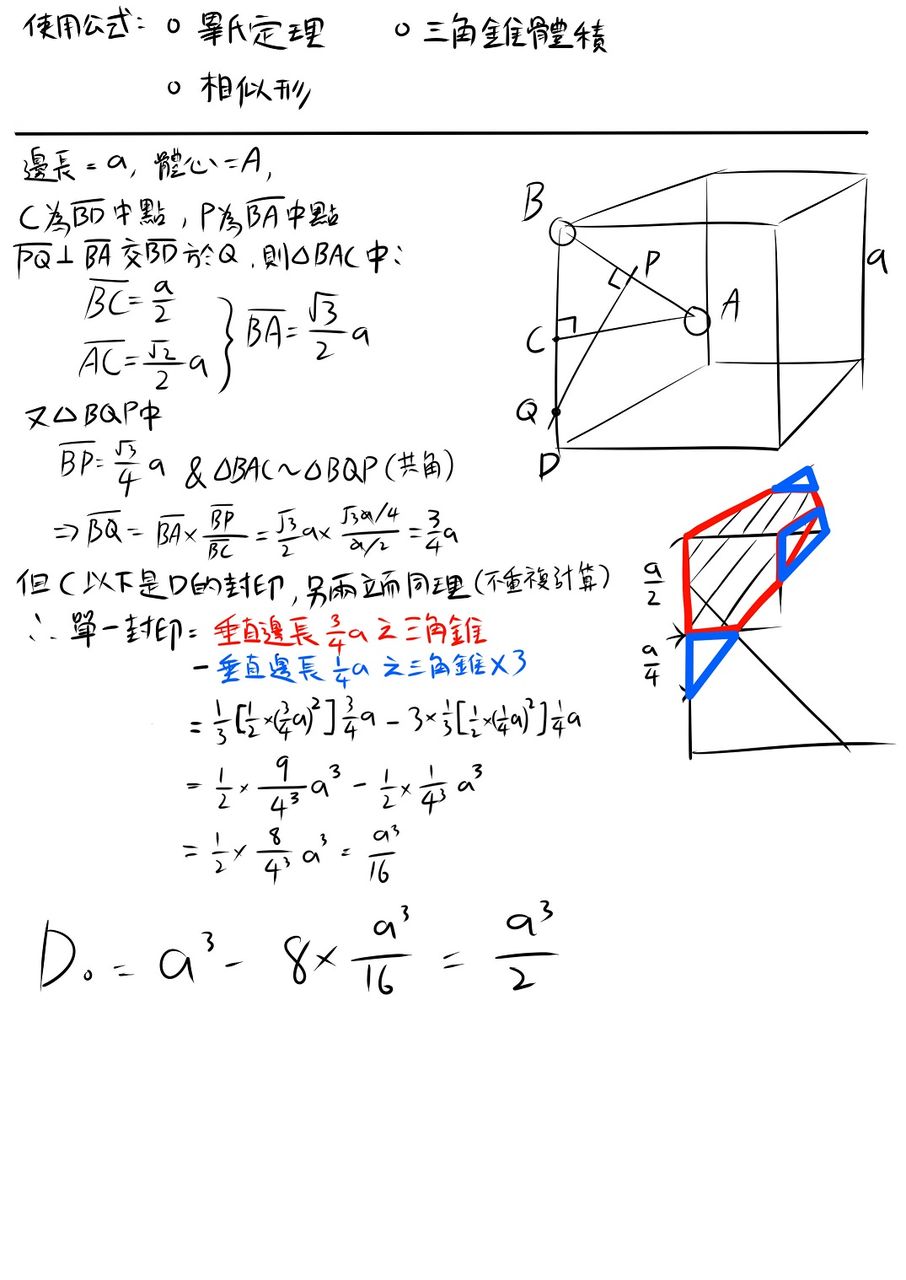 使用公式: ○ 畢氏定理 ○ 三角錐體積
○ 相似形
邊長=a, 體心=A,
C為BD中點, P為BA中點
PQ⊥BA 交BD於Q, 則△BAC中:
BC = a/2
AC = √2/2 a } BA = √3/2 a
又△BQP中
BP = √3/4 a & △BAC~△BQP (共角)
⇒ BQ = BA × BP/BC = √3/2 a × (√3a/4)/(a/2) = 3/4 a
但C以下是D的封印, 另兩立面同理(不重複計算)
∴ 單一封印 = 垂直邊長 3/4 a 之三角錐
- 垂直邊長 1/4 a 之三角錐×3
= 1/3 [1/2 × (3/4 a)²] 3/4 a - 3 × 1/3 [1/2 × (1/4 a)²] 1/4 a
= 1/2 × 9/4³ a³ - 1/2 × 1/4³ a³
= 1/2 × 8/4³ a³ = a³/16
D₀ = a³ - 8 × a³/16 = a³/2
B
P
a
A
C
Q
D
a/2
a/4